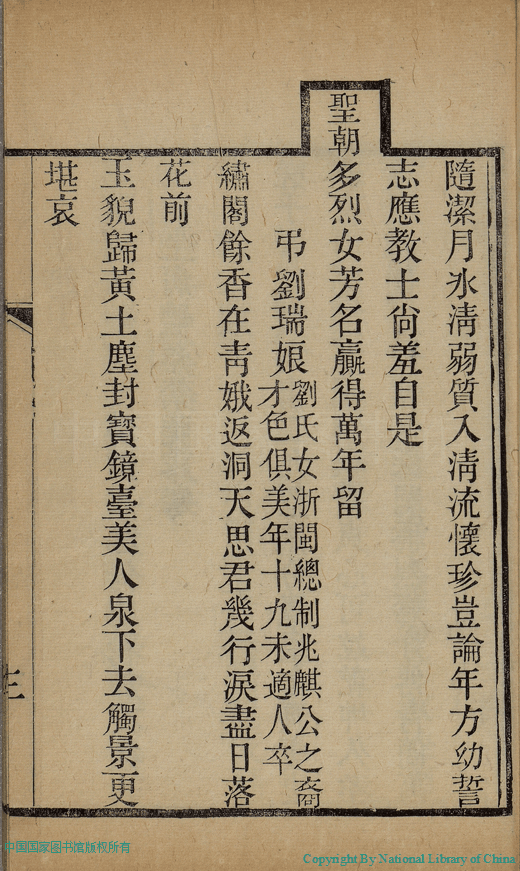 隨潔月氷清弱質入清流懷珍豈論年方幼誓
志應教士尙羞自是
聖朝多烈女芳名贏得萬年留
弔劉瑞娘劉氏女浙閩總制兆麒公之裔
才色俱美年十九未適人卒
繡閣餘香在靑娥返洞天思君幾行淚盡日落
花前
玉貌歸黃土塵封寶鏡臺美人泉下去觸景更
堪哀
中国国家图书馆版权所有
Copyright By National Library of China